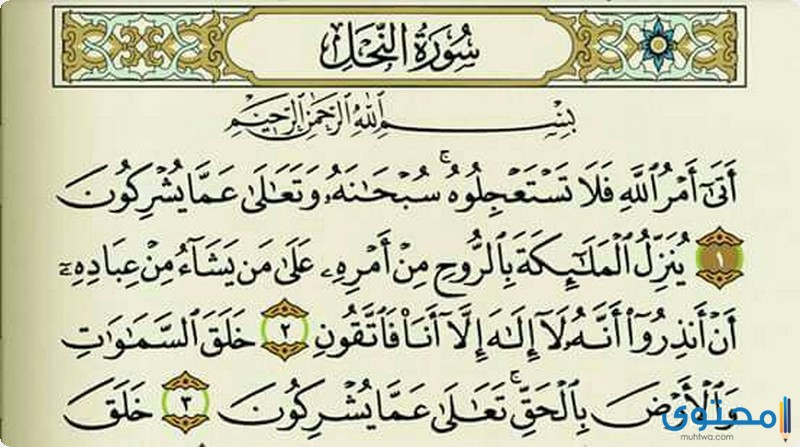 سُورَةُ النَّحْلِ
بِسْمِ ٱللَّهِ ٱلرَّحْمَٰنِ ٱلرَّحِيمِ
أَتَىٰٓ أَمْرُ ٱللَّهِ فَلَا تَسْتَعْجِلُوهُ ۚ سُبْحَٰنَهُۥ وَتَعَٰلَىٰ عَمَّا يُشْرِكُونَ
١ يُنَزِّلُ ٱلْمَلَٰٓئِكَةَ بِٱلرُّوحِ مِنْ أَمْرِهِۦ عَلَىٰ مَن يَشَآءُ مِنْ عِبَادِهِۦٓ
أَنْ أَنذِرُوٓا۟ أَنَّهُۥ لَآ إِلَٰهَ إِلَّآ أَنَا۠ فَٱتَّقُونِ ٢ خَلَقَ ٱلسَّمَٰوَٰتِ
وَٱلْأَرْضَ بِٱلْحَقِّ ۚ تَعَٰلَىٰ عَمَّا يُشْرِكُونَ ٣ خَلَقَ
محتوى
muhtwa.com